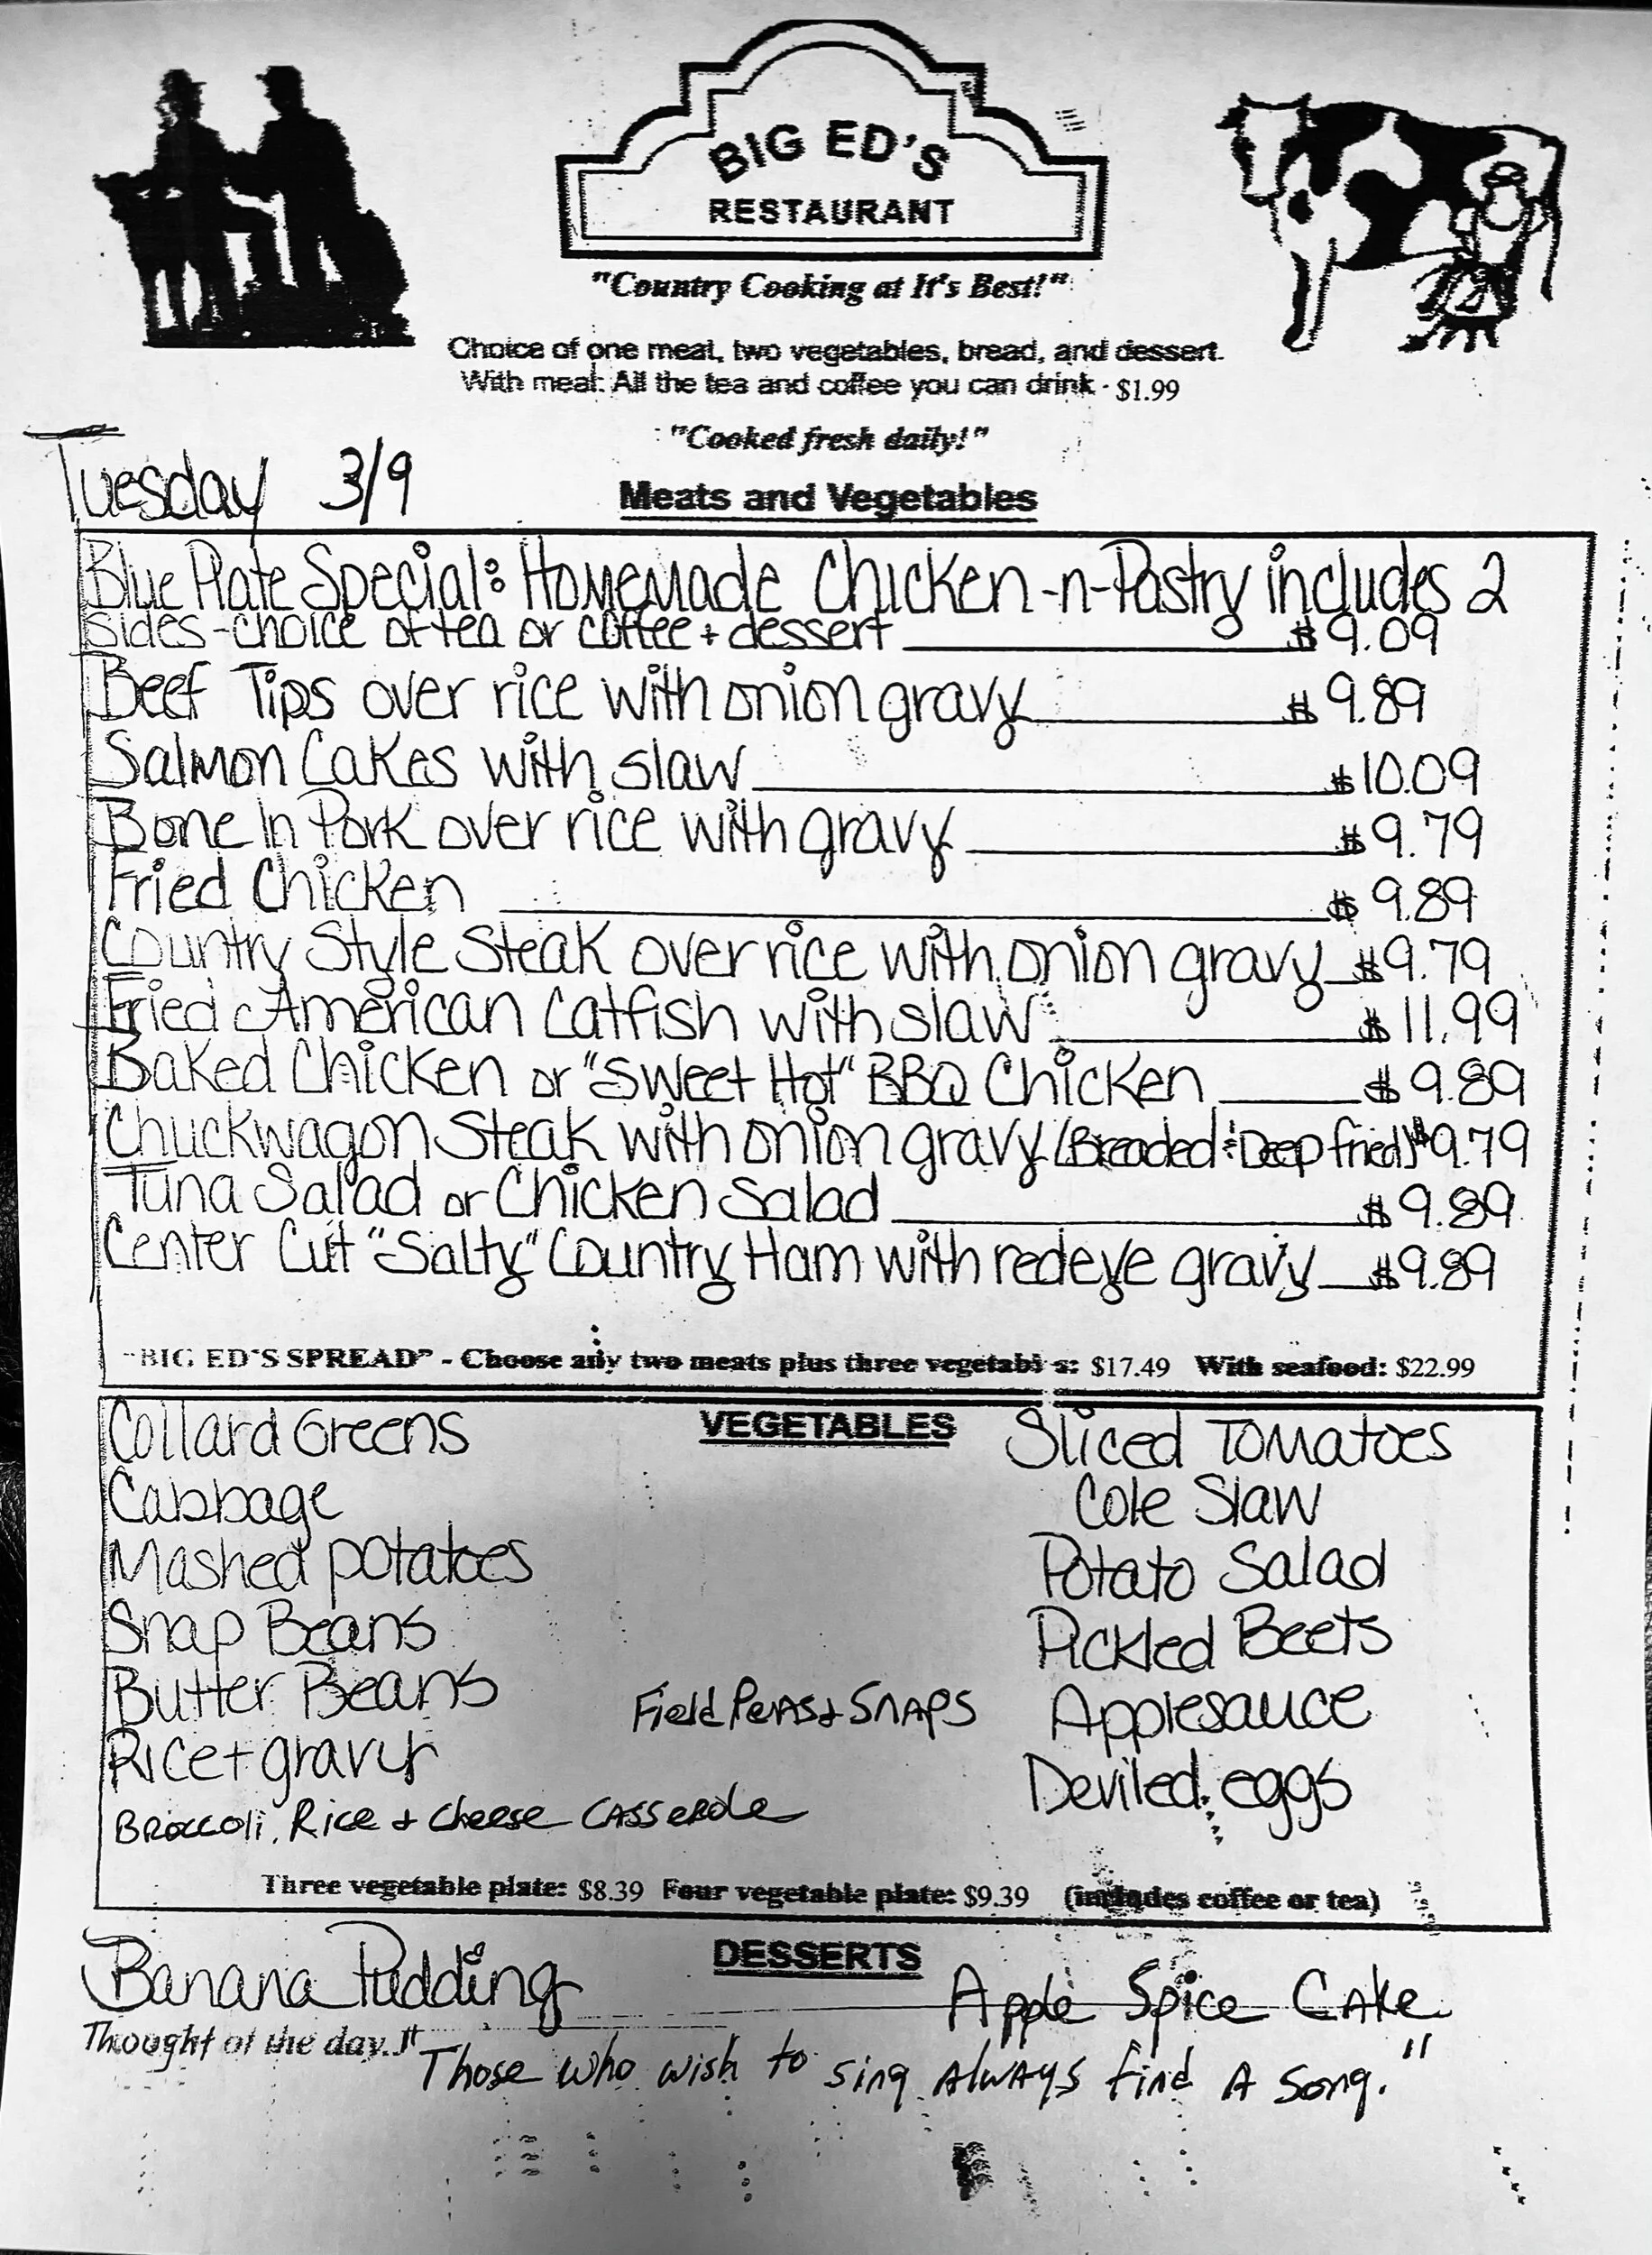 BIG ED'S
RESTAURANT
"Country Cooking at It's Best!"
Choice of one meat, two vegetables, bread, and dessert.
With meal: All the tea and coffee you can drink - $1.99
"Cooked fresh daily!"
Tuesday 3/9
Meats and Vegetables
Blue Plate Special: Homemade Chicken-n-Pastry includes 2
sides-choice of tea or coffee + dessert $9.09
Beef Tips over rice with onion gravy $9.89
Salmon Cakes with slaw $10.09
Bone In Pork over rice with gravy $9.79
Fried Chicken $9.89
Country Style Steak over rice with onion gravy $9.79
Fried American Catfish with slaw $11.99
Baked Chicken or "Sweet Hot" BBQ Chicken $9.89
Chuckwagon Steak with onion gravy (Breaded & Deep fried) $9.79
Tuna Salad or Chicken Salad $9.89
Center Cut "Salty" Country Ham with redeye gravy $9.89
"BIG ED'S SPREAD" - Choose any two meats plus three vegetables: $17.49 With seafood: $22.99
VEGETABLES
Collard Greens
Cabbage
Mashed potatoes
Snap Beans
Butter Beans
Rice + gravy
Broccoli, Rice + Cheese Casserole
Field Peas + Snaps
Sliced Tomatoes
Cole Slaw
Potato Salad
Pickled Beets
Applesauce
Deviled eggs
Three vegetable plate: $8.39 Four vegetable plate: $9.39 (includes coffee or tea)
DESSERTS
Banana Pudding Apple Spice Cake
Thought of the day.. "Those who wish to sing always find a song."